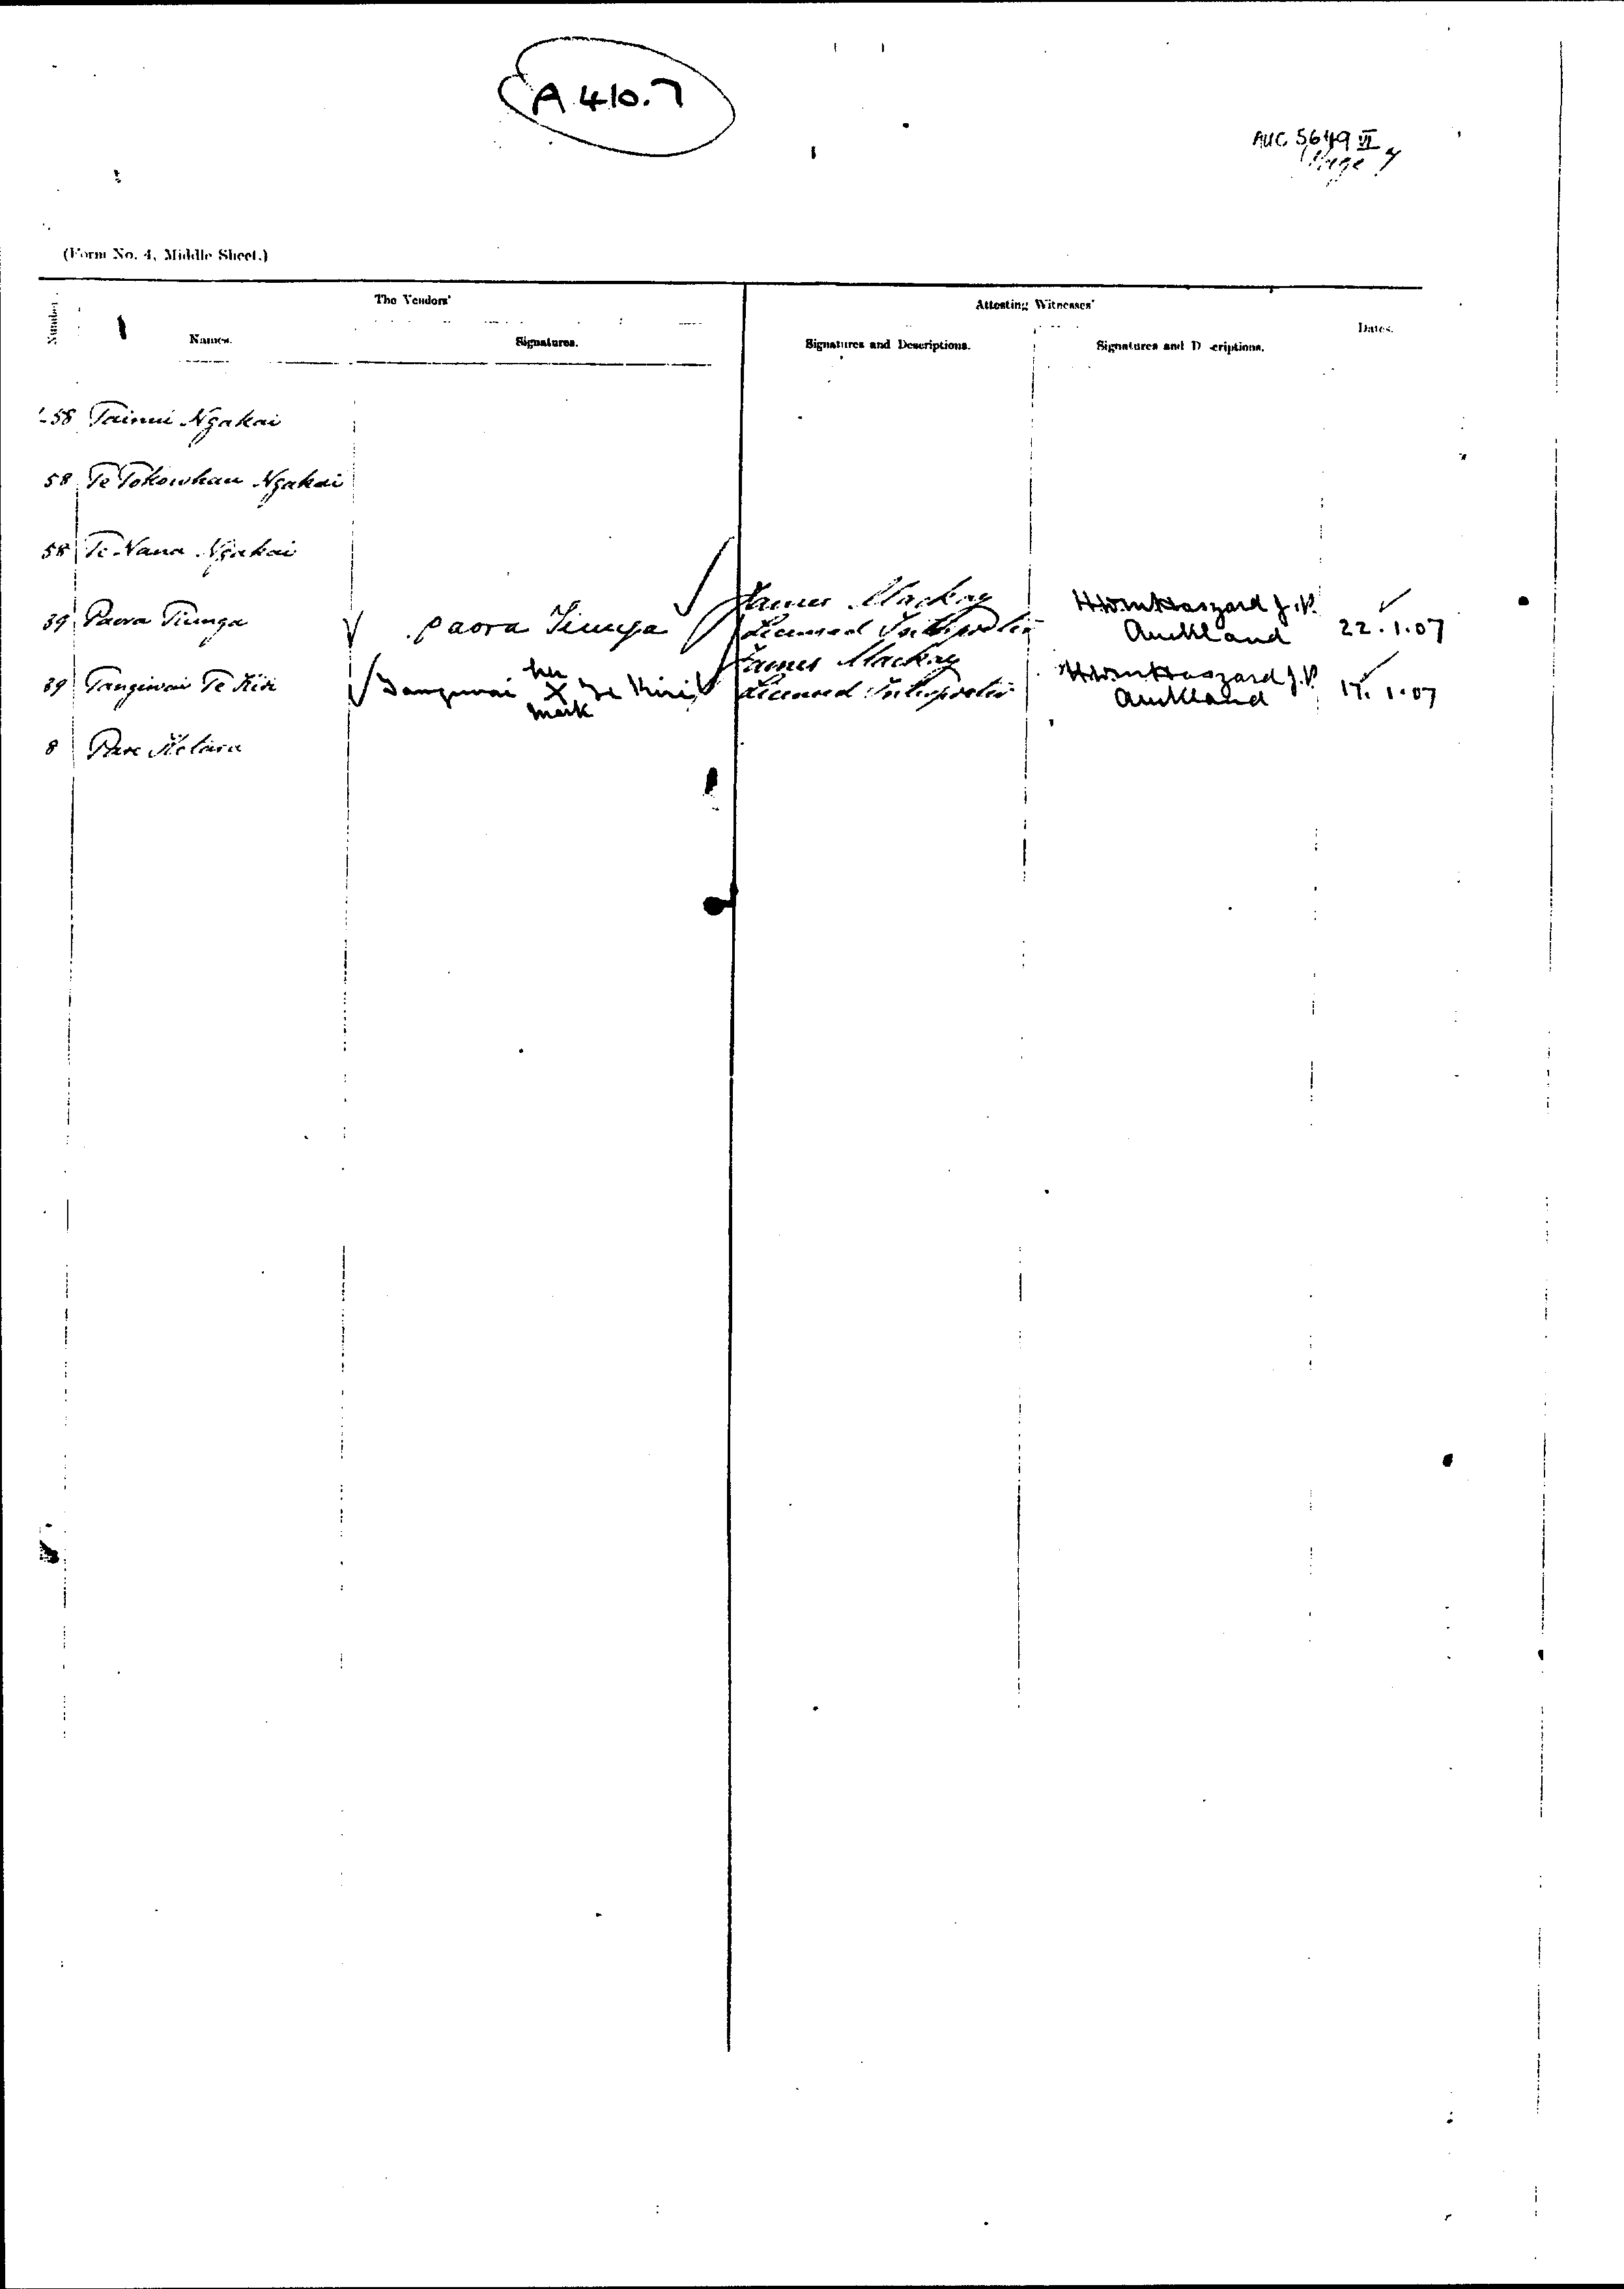 A 410.7
AUC 5649 VI
Page 7
(Form No. 4, Middle Sheet.)
Number
The Vendors'
Attesting Witnesses'
Names.
Signatures.
Signatures and Descriptions.
Signatures and D eriptions.
Dates.
58 Tainui Ngakai
58 Te Tokowhau Ngakai
58 Te Nana Ngakai
39 Paora Tiunga
paora Tiunga
James Mackay
Licensed Interpreter
Haszard J.P.
Auckland
22.1.07
39 Tangiwai Te Kiri
Tangiwai her X mark Te Kiri
James Mackay
Licensed Interpreter
Haszard J.P.
Auckland
17.1.07
8 Pare